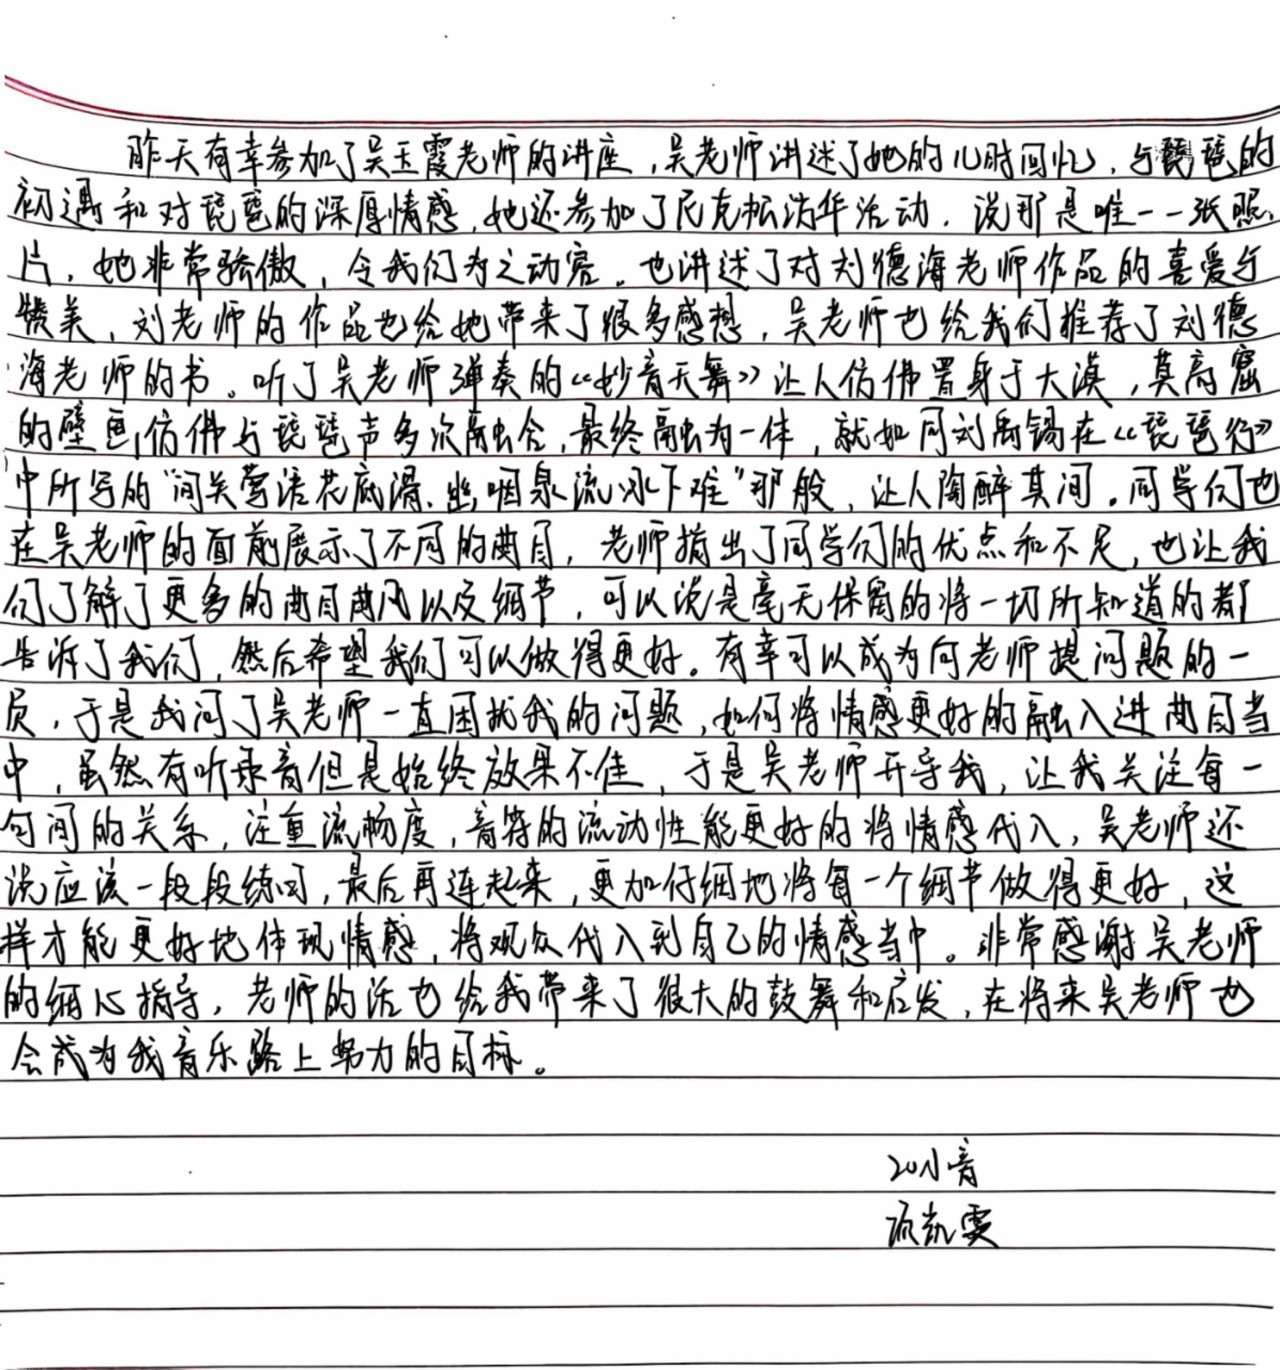 昨天有幸参加了吴玉霞老师的讲座，吴老师讲述了她的儿时回忆，与琵琶的
初遇和对琵琶的深厚情感，她还参加了尼克松访华活动，说那是唯一一张照
片，她非常骄傲，令我们为之动容。也讲述了对刘德海老师作品的喜爱与
赞美，刘老师的作品也给她带来了很多感想，吴老师也给我们推荐了刘德
海老师的书。听了吴老师弹奏的《妙音天舞》让人仿佛置身于大漠，莫高窟
的壁画仿佛与琵琶声多次融合，最终融为一体，就如同刘禹锡在《琵琶行》
中所写的“间关莺语花底滑、幽咽泉流冰下难”那般，让人陶醉其间。同学们也
在吴老师的面前展示了不同的曲目，老师指出了同学们的优点和不足，也让我
们了解了更多的曲目曲风以及细节，可以说是毫无保留的将一切所知道的都
告诉了我们，然后希望我们可以做得更好。有幸可以成为向老师提问题的一
员，于是我问了吴老师一直困扰我的问题，如何将情感更好的融入进曲目当
中，虽然有听录音但是始终效果不佳，于是吴老师开导我，让我关注每一
句间的关系，注重流畅度，音符的流动性能更好的将情感代入，吴老师还
说应该一段段练习，最后再连起来，更加仔细地将每一个细节做得更好，这
样才能更好地体现情感，将观众代入到自己的情感当中。非常感谢吴老师
的细心指导，老师的话也给我带来了很大的鼓舞和启发，在将来吴老师也
会成为我音乐路上努力的目标。
凯雯